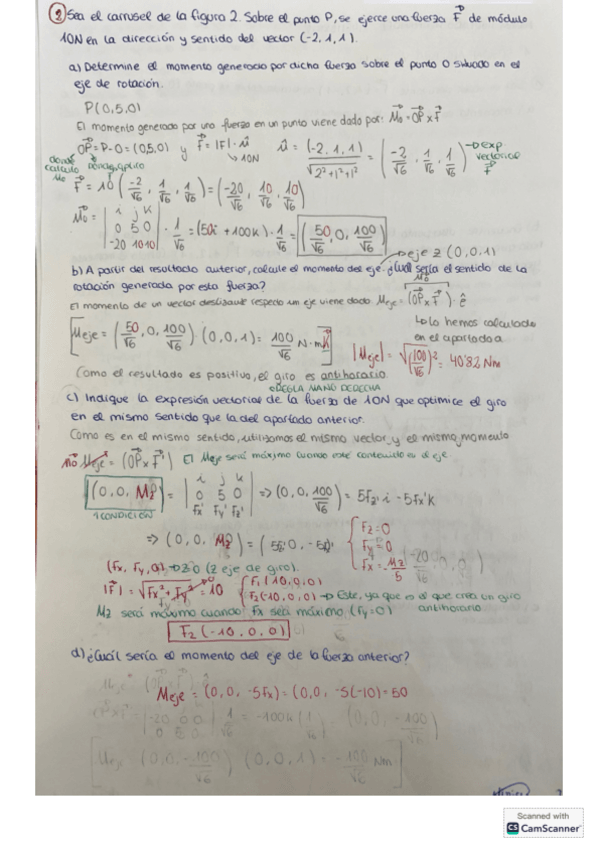 2 Sea el carrusel de la figura 2. Sobre el punto P, se ejerce una fuerza F⃗ de módulo
10N en la dirección y sentido del vector (-2, 1, 1).
a) Determine el momento generado por dicha fuerza sobre el punto O situado en el
eje de rotación.
P(0,5,0)
El momento generado por una fuerza en un punto viene dado por: M⃗o = OP⃗ x F⃗
OP⃗ = P-O = (0,5,0) y F⃗ = |F| · û û = (-2, 1, 1) / √2²+1²+1² = (-2/√6, 1/√6, 1/√6) → exp vectorial F⃗
→ 10N
donde calculo Mo
F⃗ = 10 (-2/√6, 1/√6, 1/√6) = (-20/√6, 10/√6, 10/√6)
M⃗o = | i j k | 0 5 0 | -20 10 10 | · 1/√6 = (50i + 100k) · 1/√6 = (50/√6, 0, 100/√6)
→ eje z (0,0,1)
b) A partir del resultado anterior, calcule el momento del eje. ¿Cuál sería el sentido de la
rotación generada por esta fuerza?
M⃗o
El momento de un vector deslizante respecto un eje viene dado Meje = (OP⃗ x F⃗) · ê
→ Lo hemos calculado
en el apartado a
[Meje = (50/√6, 0, 100/√6) · (0,0,1) = 100/√6 N·m]
|Meje| = √(100/√6)² = 40'82 Nm
Como el resultado es positivo, el giro es antihorario.
REGLA MANO DERECHA
c) Indique la expresión vectorial de la fuerza de 10N que optimice el giro
en el mismo sentido que la del apartado anterior.
Como es en el mismo sentido, utilizamos el mismo vector y el mismo momento
no Meje = (OP⃗ x F⃗') El Meje será máximo cuando esté contenido en el eje
(0, 0, Mz) = | i j k | 0 5 0 | Fx' Fy' Fz' | => (0, 0, 100/√6) = 5Fz' i - 5Fx' k
1 CONDICIÓN
=> (0, 0, Mz) =
Fz = 0
Fy = 0
Fx = - Mz/5
(Fx, Fy, 0) → z=0 (z eje de giro).
|F⃗| = √Fx² + Fy² = 10
F1 (10, 0, 0)
F2 (-10, 0, 0) → Este, ya que es el que crea un giro
antihorario
Mz será máximo cuando Fx sea máximo (Fy=0)
F2 (-10, 0, 0)
d) ¿Cuál sería el momento del eje de la fuerza anterior?
Meje = (0,0, -5Fx) = (0,0, -5(-10) = 50
| -20 0 0 | 0 5 0 | 1/√6 = -100k (1/√6) = (0,0, -100/√6)
[Meje (0,0, -100/√6) (0,0,1) = -100/√6 Nm]
Scanned with
CS CamScanner